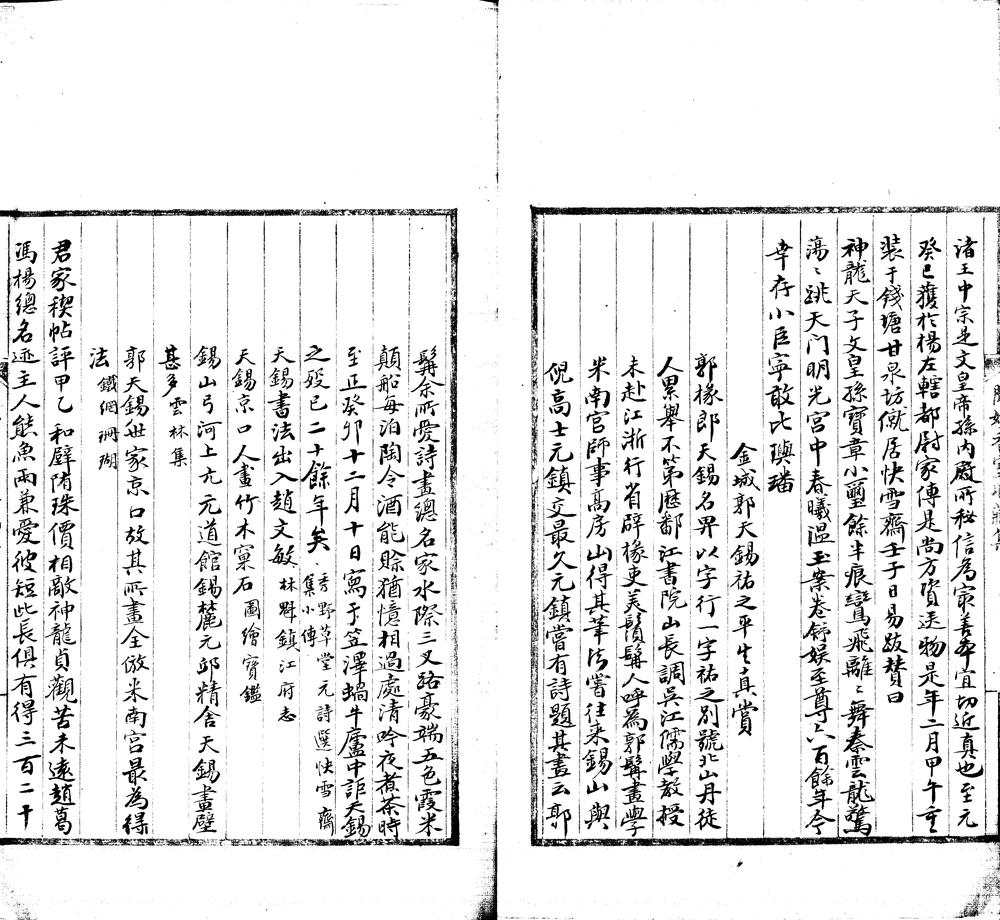 諸王中宗是文皇帝孫內廄所秘信為㝡善本宜切近真也至元
癸巳獲於楊左轄都尉家傳是尚方資送物是年二月甲午重
装于錢塘甘泉坊僦居快雪齋壬子日易跋賛曰
神龍天子文皇孫寶章小璽餘半痕鸞飛離〻舞秦雲龍驚
蕩〻跳天門明光宮中春曦温玉案卷舒娱至尊六百餘年今
幸存小臣寧敢比璵璠
金城郭天錫祐之平生真賞
郭椽郎天錫名畀以字行一字祐之别號北山丹徒
人累舉不第歷鄱江書院山長調吳江儒學教授
未赴江浙行省辟椽吏美鬚髯人呼為郭髯畫學
米南宫師事高房山得其筆法嘗往来錫山與
倪高士元鎮交最久元鎮嘗有詩題其畫云郭
髯余所愛詩畫總名家水際三义路豪端五色霞米
顛船每泊陶令酒能賒猶憶相過處清吟夜煮茶時
至正癸卯十二月十日寫于笠澤蝸牛廬中詎天錫
之殁已二十餘年矣 秀野草堂元詩選快雪齋集小傳
天錫書法出入趙文敏 林㷆鎮江府志
天錫京口人畫竹木窠石 圖繪寶鑑
錫山弓河上亢元道館錫麓元邱精舍天錫畫壁
甚多 雲林集
郭天錫世家京口故其所畫全倣米南宫最為得
法 鐵網珊瑚
君家稧帖評甲乙和璧隋珠價相敵神龍貞觀苦未遠趙葛
馮楊總名迹主人熊魚兩兼愛彼短此長俱有得三百二十